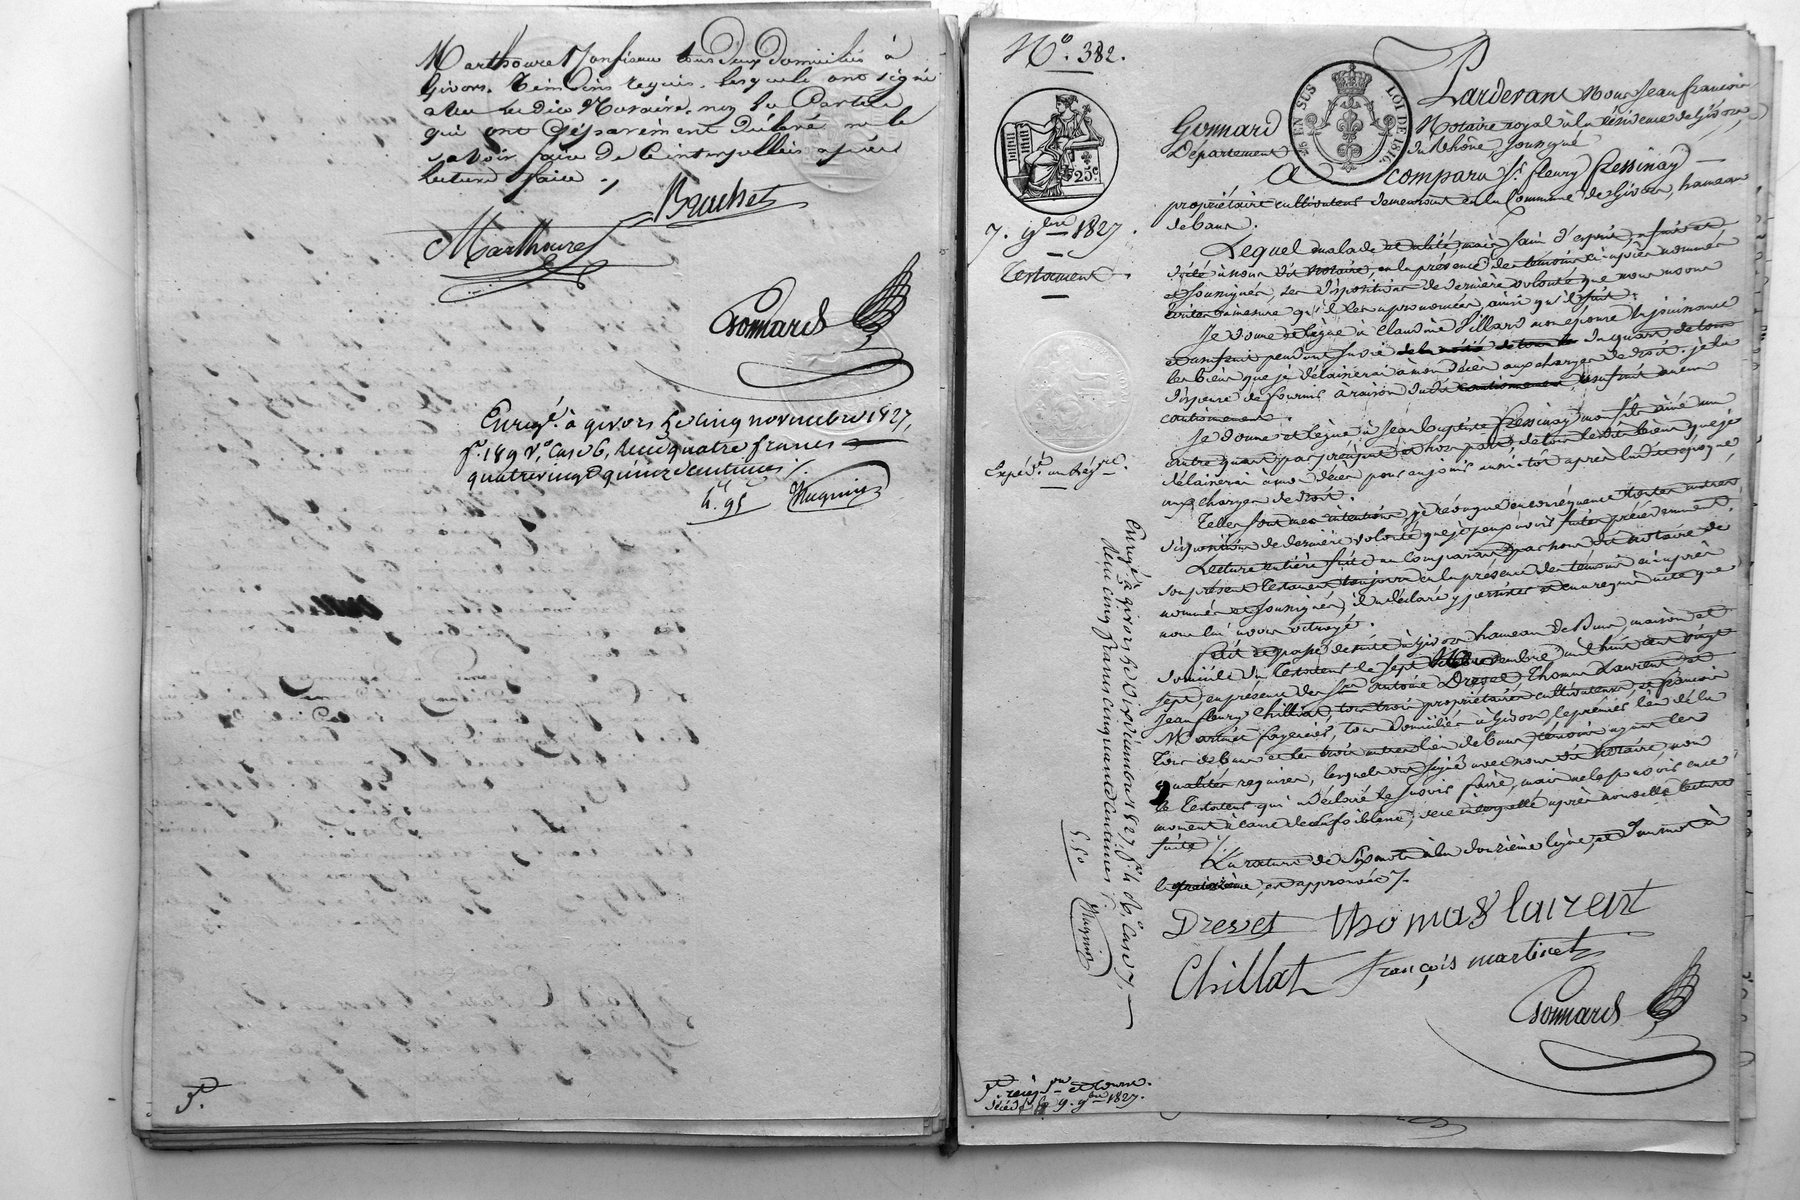 Marthoure Tonfieau tous deux domiciliés à
Givors. témoins requis. lesquels ont signé
avec le dit Notaire, non les Parties
qui ont séparément déclaré ne le
savoir faire de ce interpellées après
lecture faite ./
Brachet
Marthoure
Gonnard
Enregé. à givors le cinq novembre 1827,
fo. 189 Vo. Case 6, Reçu quatre francs
quatrevingt quinze centimes /.
4. 95 Magnin
P.
No. 382.
Pardevant Nous Jean françois
Gonnard Notaire royal à la résidence de Givors,
Département du Rhône soussigné
A comparu Sr. fleury fressinay
propriétaire cultivateur demeurant en la Commune de Givors, hameau
de bans.
EN SUS LOI DE 1816
25c
7. 9bre 1827.
Testament
Expéd. au Rég.
Lequel malade et alité, mais sain d'esprit, a fait et
dicté à nous dit Notaire, en la présence des témoins ci-après nommés
et soussignés, ses dispositions de dernière volonté que nous avons
écrites à mesure qu'il les a prononcées, ainsi qu'il suit:
Je donne et lègue à Claudine Villard mon épouse la jouissance
et usufruit pendant sa vie de la moitié de tous les du quart de tous
les biens que je délaisserai à mon décès aux charges de droit. je la
dispense de fournir à raison dudit cautionnement usufruit aucun
cautionnement.
Je donne et lègue à Jean Baptiste fressinay mon fils aîné un
entre quart par préciput et hors part, de tous lesdits biens que je
délaisserai à mon décès pour en jouir aussitôt après ladite époque,
aux charges de droit.
Telles sont mes intentions, je révoque en conséquence toutes autres
dispositions de dernière volonté que je peux avoir faites précédemment.
Lecture entière faite au Comparant par nous dit Notaire de
son présent testament toujours en la présence des témoins ci-après
nommés et soussignés, il a déclaré y persister et en a requis acte que
nous lui avons octroyé.
fait et passé de suite à Givors hameau de Bans, maison et
domicile du Testateur le sept novembre mil huit cent vingt
sept, en présence des Srs. Antoine Drevet, Thomas Laurent et
Jean fleury Chillat, tous trois propriétaires cultivateurs, et françois
Martinet forgeur, tous domiciliés à Givors le premier lieu de la
Tour de bans et les trois autres lieu de bans, témoins ayant les
qualités requises, lesquels ont signé avec nous dit Notaire, non
le Testateur qui a déclaré le savoir faire, mais ne le pouvoir en ce
moment à cause de sa foiblesse, de ce interpellé après nouvelle lecture
faite /.
La rature de six mots à la douzième ligne, et d'un mot à
la quatorzième, est approuvée /.
Drevet thomas laurent
Chillat françois martinet
Gonnard
Enregé. à givors le dix novembre 1827. fo. 4 Ro. Case 7,
reçu cinq francs cinquante centimes /.
5. 50 Magnin
décédé le 9. 9bre 1827.